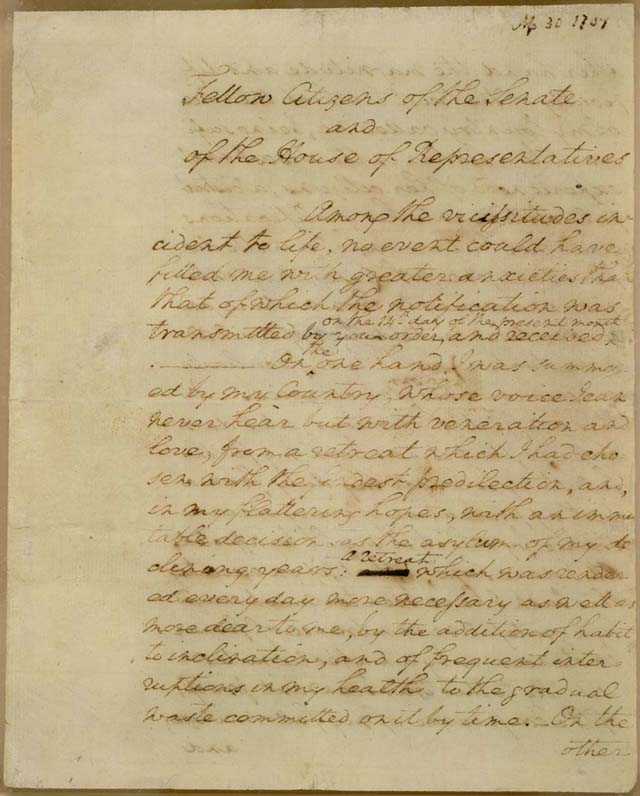 Ap 30 1789
Fellow Citizens of the Senate
and
of the House of Representatives
Among the vicissitudes in-
cident to life, no event could have
filled me with greater anxieties than
that of which the notification was
on the 14th day of the present month
transmitted by your order, and received
the
On one hand, I was summon
ed by my Country, whose voice I can
never hear but with veneration and
love, from a retreat which I had cho
sen with the fondest predilection, and,
in my flattering hopes, with an immu
table decision, as the asylum of my de
clining years: 
a retreat
which was render
ed every day more necessary as well as
more dear to me, by the addition of habit
to inclination, and of frequent inter
ruptions in my health to the gradual
waste committed on it by time. On the
other